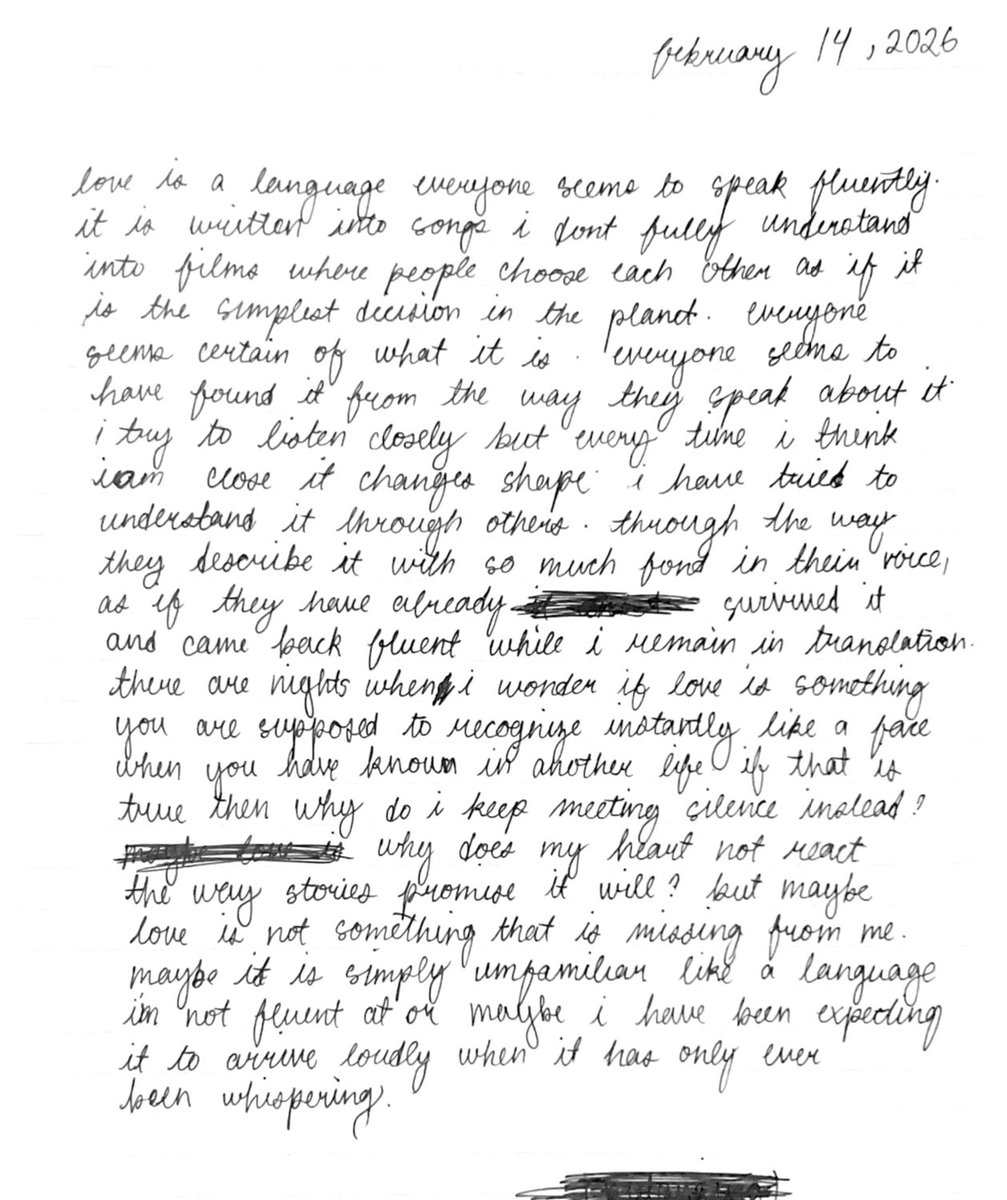 february 14, 2026
love is a language everyone seems to speak fluently.
it is written into songs i dont fully understand
into films where people choose each other as if it
is the simplest decision in the planet. everyone
seems certain of what it is. everyone seems to
have found it from the way they speak about it.
i try to listen closely but every time i think
i am close it changes shape. i have tried to
understand it through others. through the way
they describe it with so much fond in their voice,
as if they have already survived it
and came back fluent while i remain in translation.
there are nights when i wonder if love is something
you are supposed to recognize instantly like a face
when you have known in another life if that is
true then why do i keep meeting silence instead?
why does my heart not react
the way stories promise it will? but maybe
love is not something that is missing from me.
maybe it is simply unfamiliar like a language
im not fluent at or maybe i have been expecting
it to arrive loudly when it has only ever
been whispering.